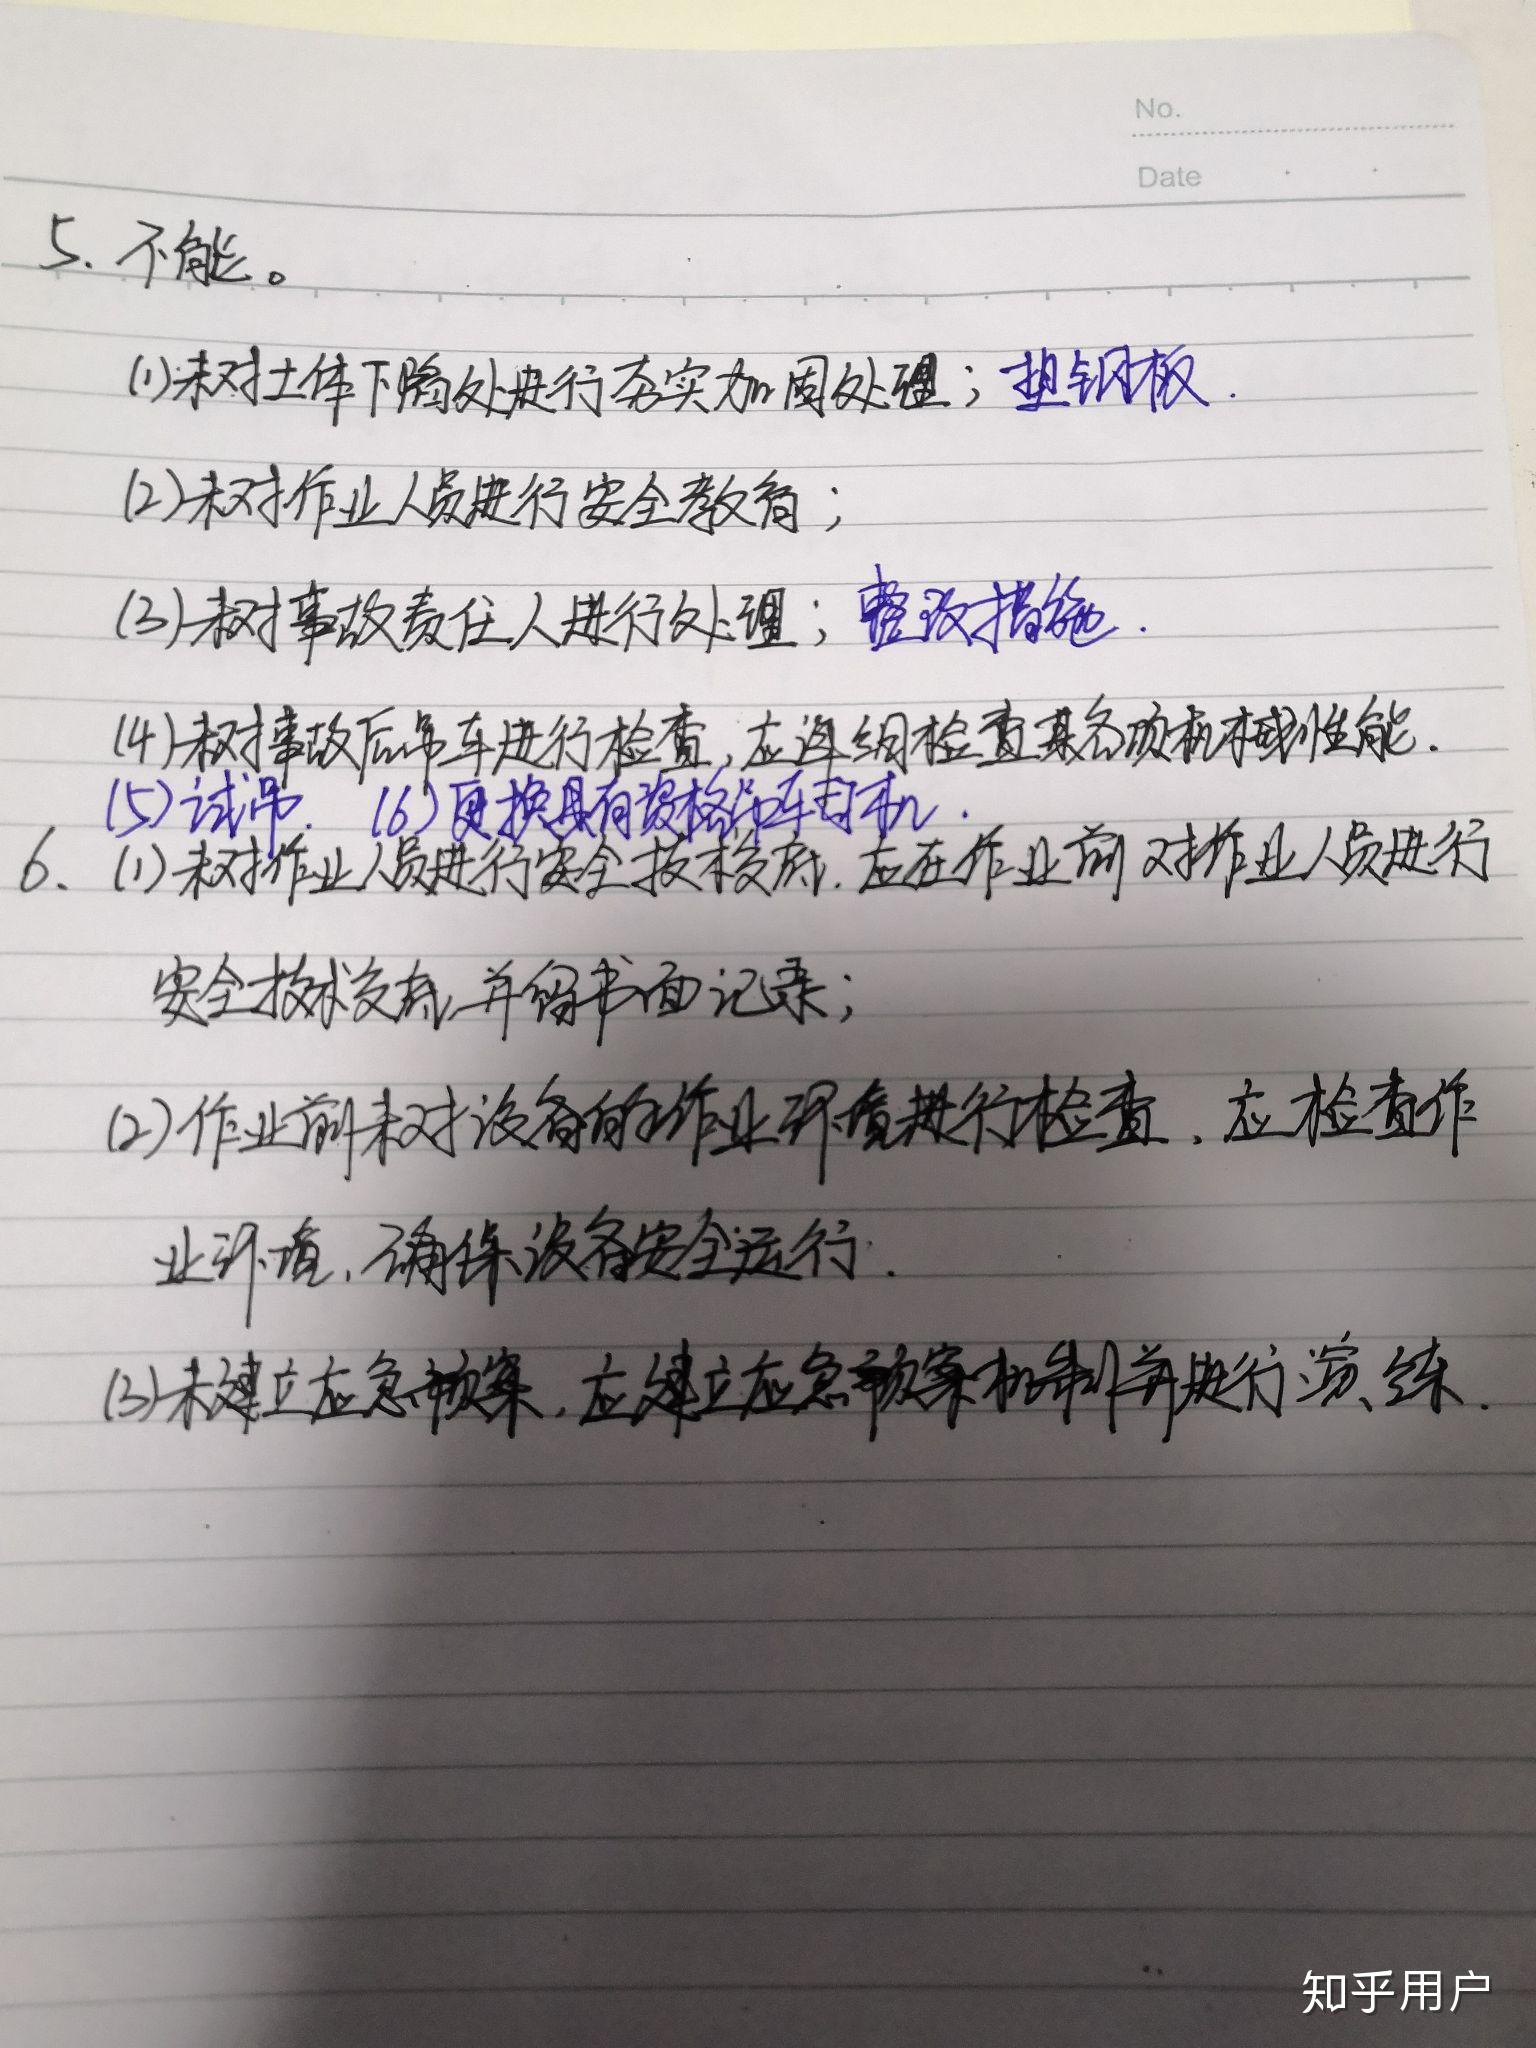 No.
Date
5. 不能。
(1)未对土体下陷处进行夯实加固处理；垫钢板.
(2)未对作业人员进行安全教育；
(3)未对事故责任人进行处理；整改措施.
(4)未对事故后吊车进行检查,应详细检查其各项机械性能.
(5)试吊. (6)更换具有资格吊车司机.
6. (1)未对作业人员进行安全技术交底.应在作业前对作业人员进行
安全技术交底,并留书面记录；
(2)作业前未对设备的作业环境进行检查,应检查作
业环境,确保设备安全运行.
(3)未建立应急预案,应建立应急预案机制并进行演练.
知乎用户